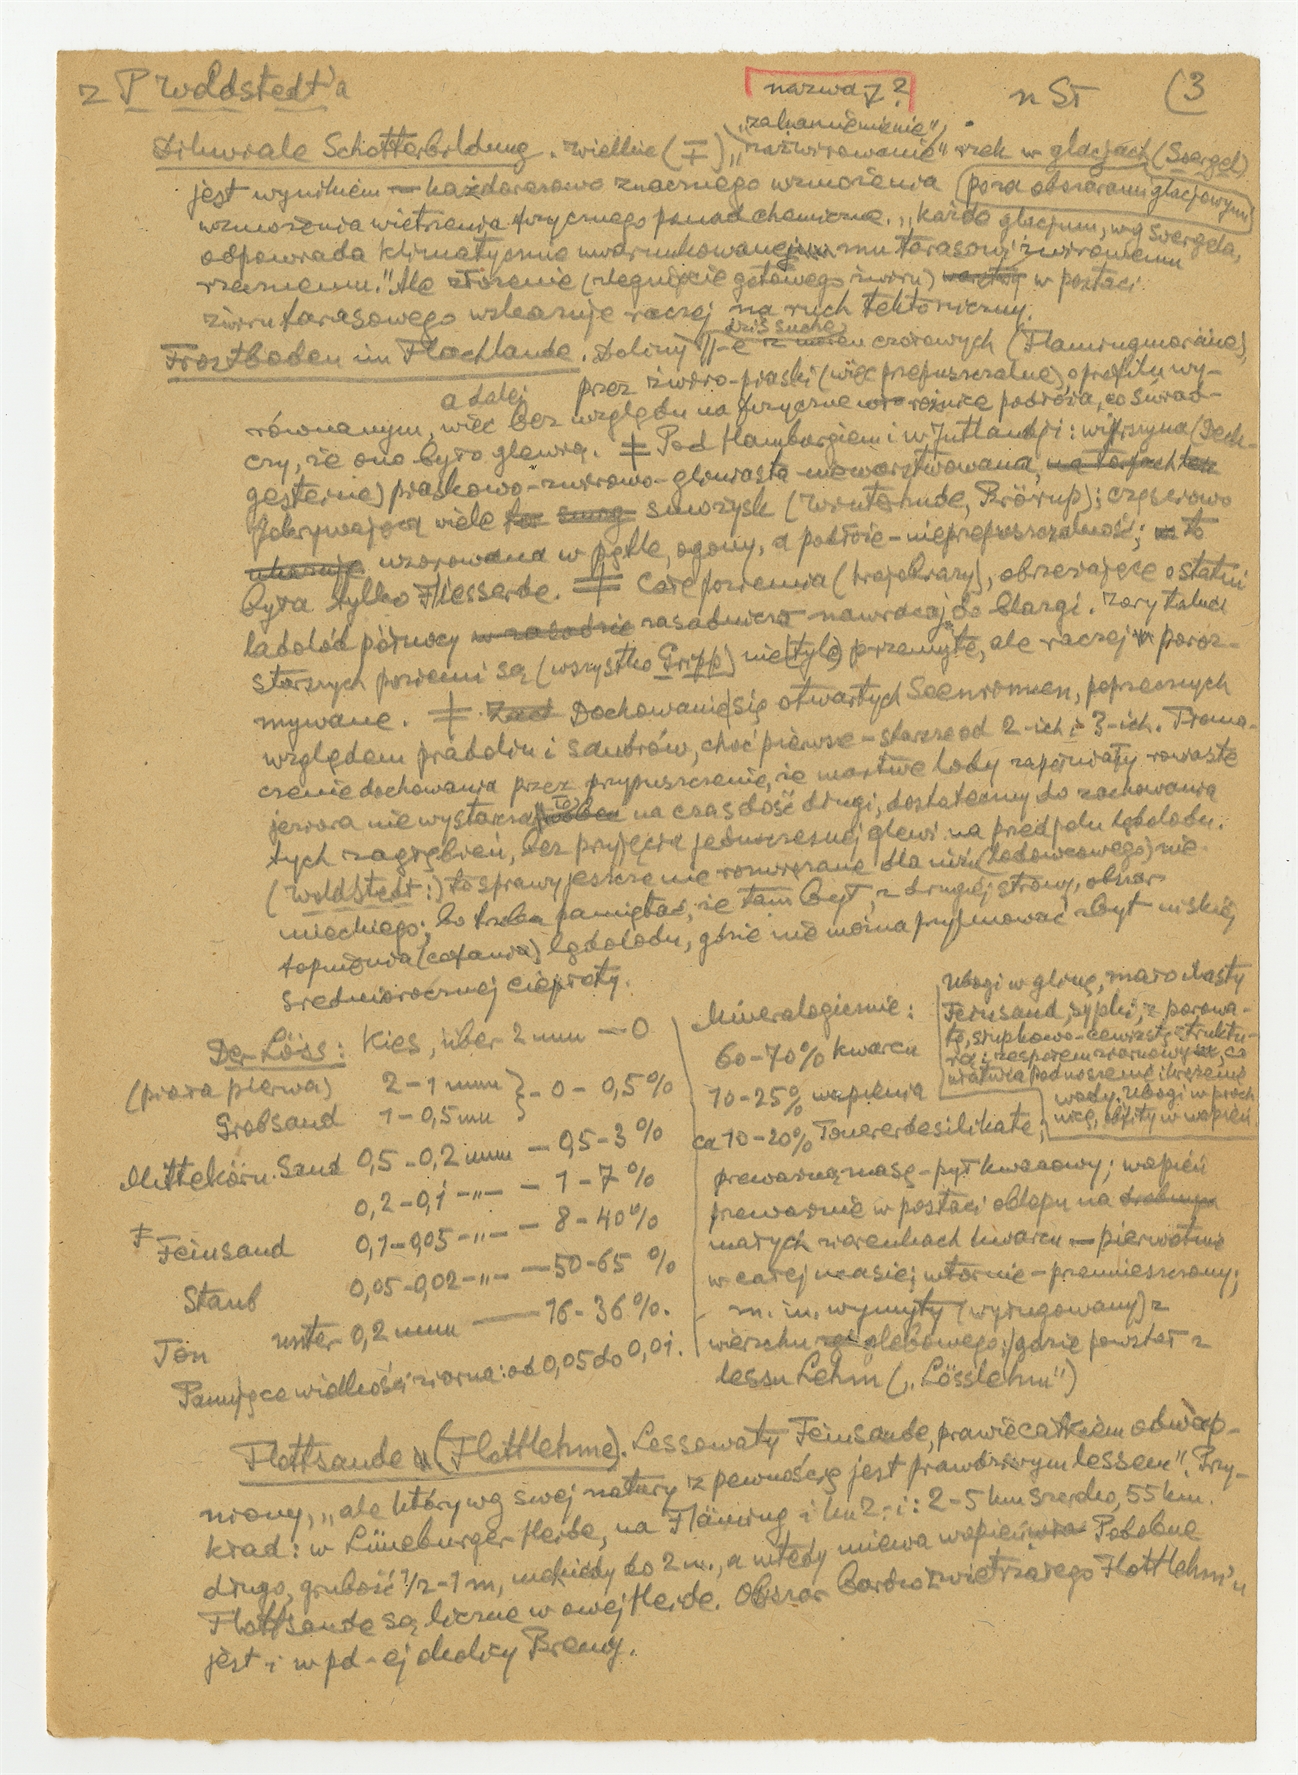 z P Woldstedt'a
nazwa ż ?
n St (3
„zakamienienie",
Diluviale Schotterbildung. Wielkie (I) „zażwirowanie" rzek w glacjach (Soergel)
jest wynikiem — każdorazowo znacznego wzmożenia (poza obszarami glacjowymi)
wzmożenia wietrzenia fizycznego ponad chemiczne. „Każde glacjum, wg Soergela,
odpowiada klimatycznie uwarunkowanemu tarasowi żwirowemu
rzecznemu." Ale złożenie (zlegnięcie gotowego żwiru) w postaci
żwiru tarasowego wskazuje raczej na ruch tektoniczny.
Frostboden im Flachlande. Doliny dziś suche moren czołowych (Flämingmoräne),
przez żwiro-piaski (więc przepuszczalne), o profilu wy-
a dalej
równanym, więc bez względu na fizyczne różnice podłoża, co świad-
czy, że ono było glewią. ‡ Pod Hamburgiem i w Jutlandji: wierzyna (Deck-
gesteine) piaskowo-żwirowo-gliniasta niewarstwowana,
pokrywająca wiele smożysk (Winterhude, Brörup); częściowo
wzorowana w pętle, ogony, a podłoże-nieprzepuszczalność; to
była tylko Fliesserde. ‡ Całe poziemia (krajobrazy), obrzeżające ostatni
lądolód północy zasadniczo nawracają do blasgi. Zarys tafli
starszych poziemi są (wszystko Gripp) nie (tyle) przemyte, ale raczej poroz-
mywane. ‡ Dochowanie się otwartych Seenrinnen, poprzecznych
względem pradolin i sandrów, choć pierwsze - starsze od 2-ich i 3-ich. Tłoma-
czenie dochowania przez przypuszczenie, że martwe lody zapełniały rowaste
jeziora nie wystarcza na czas dość długi, dostateczny do zachowania
tych zagłębień, bez przyjęcia jednoczesnej glewi na przedpolu lądolodu.
(Woldstedt:) to sprawy jeszcze nie rozwiązane dla niżu (lodowcowego) nie-
mieckiego; bo trzeba pamiętać, że tam był, z drugiej strony, obszar
topnienia (cofania) lądolodu, gdzie nie można przyjmować zbyt niskiej
średniorocznej ciepłoty.
Der Löss: Kies, über 2 mm — 0
(piora pierwa) 2-1 mm } - 0 - 0,5%
Grobsand 1-0,5 mm
Mittelkörn. Sand 0,5-0,2 mm — 0,5-3%
0,2-0,1 -„- — 1-7%
‡ Feinsand 0,1-0,05 -„- — 8-40%
Staub 0,05-0,02 -„- — 50-65%
Ton unter 0,2 mm — 16-36%.
Panujące wielkości ziarna: od 0,05 do 0,01.
Mineralogicznie:
60-70% kwarcu
10-25% wapienia
ca 10-20% Tonerdesilikate;
przeważną masę - pył kwarcowy; wapień
przeważnie w postaci oblepu na
małych ziarenkach kwarcu — pierwotnie
w całej masie; wtórnie - przemieszczony;
m. in. wymyty (wyługowany) z
wierzchu glebowego, gdzie powstał z
lessu Lehm („Lösslehm")
Ubogi w glinę, mało ilasty
Feinsand, sypki, z porowa-
tą, słupkowo-cewiastą struktu-
rą; zespołem ziarnowym, co
ułatwia podnoszenie i krążenie
wody. Ubogi w próch-
nicę, obfity w wapień.
Flottsande (Flottlehme). Lessowaty Feinsande, prawie całkiem odwap-
niony, „ale który wg swej natury z pewnością jest prawdziwym lessem". Przy-
kład: w Lüneburger Heide, na Fläming i ku Z-i: 2-5 km szeroko, 55 km.
długo, grubość 1/2-1 m, niekiedy do 2 m., a wtedy miewa wapień. Podobne
Flottsande są liczne w owej Heide. Obszar bardzo zwietrzałego Flottlehm'u
jest i w pd-ej okolicy Bremy.